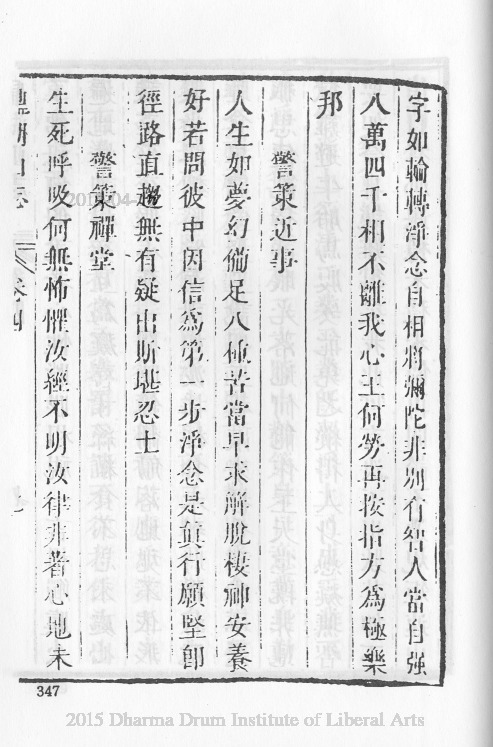 字如輪轉淨念自相將彌陀非別有智人當自强
八萬四千相不離我心王何勞再按指方為極樂
邦
警策近事
人生如夢幻備足八種苦當早求解脫棲神安養
好若問彼中因信為第一步淨念是真行願堅卽
徑路直趨無有疑出斯堪忍土
警策禪堂
生死呼吸何無怖懼汝經不明汝律非著心地未
山志 卷四
347
2015 Dharma Drum Institute of Liberal Arts